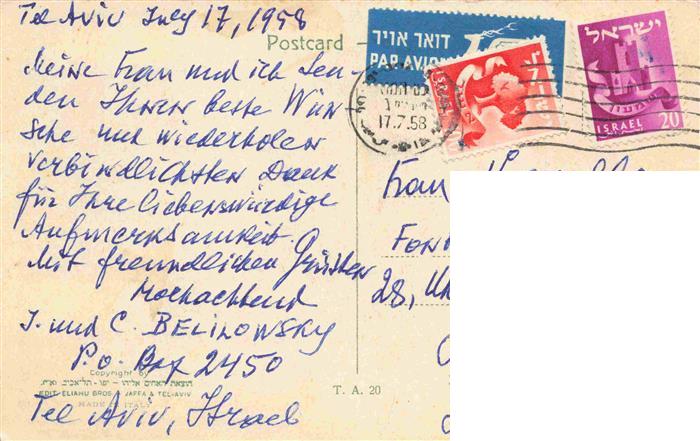 Tel Aviv July 17, 1958
Postcard
Meine Frau und ich sen-
den Ihnen beste Wün-
sche und wiederholen
verbindlichsten Dank
für Ihre liebenswürdige
Aufmerksamkeit.
Mit freundlichen Grüssen
Hochachtend
J. und C. BELILOWSKY
P.o. Box 2450
Tel Aviv, Israel
Copyright by
הוצאת האחים אליהו - יפו-תל-אביב, ואיק.
EDIT. ELIAHU BROS. JAFFA & TEL-AVIV
MADE IN ITALY
T. A. 20
דואר אויר
PAR AVION
17.7.58
ISRAEL
7
ישראל
ISRAEL 20
Frau
28,